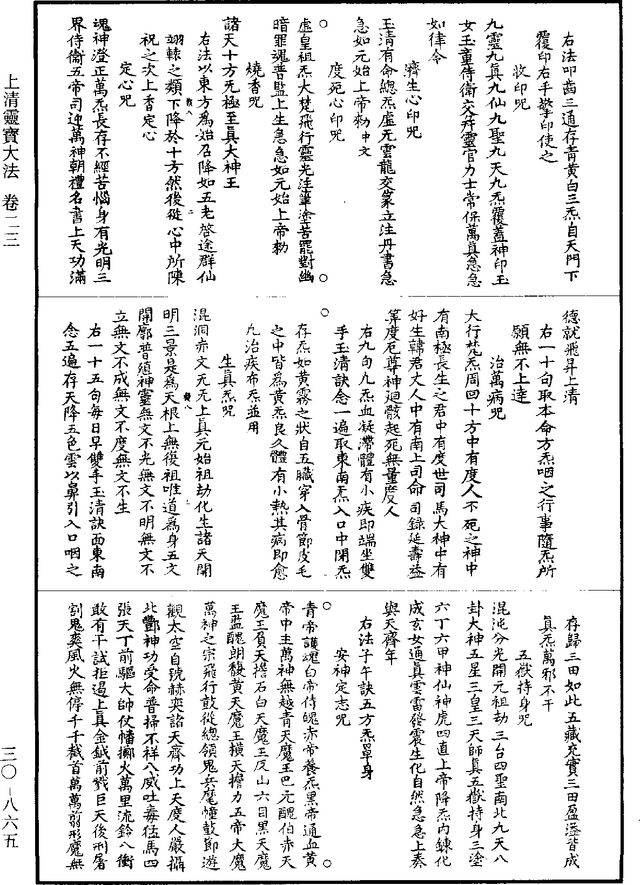 右法叩齒三通存青黃白三炁自天門下
覆印右手擎印使之
收印呪
九靈九真九仙九聖九天九炁覆蓋神印玉
女玉童侍衛交并靈官力士常保萬真急急
如律令
濟生心印呪
玉清有命總炁虛无雲龍交篆立注丹書急
急如元始上帝勑中文
度死心印呪
虛皇祖炁大梵飛行靈光注筆塗苦罷對幽
暗罪魂普監上生急急如元始上帝勑
燒香呪
諸天十方无極至真大神王
右法以東方為始召降如五老啓途群仙
翊轅之類下降於十方然後發心中所陳
祝之次上香定心
定心呪
魂神澄正萬炁長存不經苦惱身有光明三
界侍衛五帝司迎萬神朝禮名書上天功滿
德就飛昇上清
右一十句取本命方炁咽之行事隨炁所
願無不上達
治萬病呪
大行梵炁周回十方中有度人不死之神中
有南極長生之君中有度世司馬大神中有
好生韓君丈人中有南上司命司錄延壽益
筭度厄尊神迴骸起死無量度人
右九句九炁血凝滯體有小疾即端坐雙
手玉清訣念一遍取東南炁入口中閉炁
存炁如黃霧之狀自五臟穿入骨節皮毛
之中皆為黃炁良久體有小熱其病即愈
九治疾布炁並用
生真炁呪
混洞赤文元无上真元始祖劫化生諸天開
明三景是為天根上無復祖唯道為身五文
開廓普殖神靈無文不光無文不明無文不
立無文不成無文不度無文不生
右一十五句每日早雙手玉清訣西東南
念五遍存天降五色雲以鼻引入口咽之
存歸三田如此五藏充實三田盈溢皆成
真炁萬邪不干
五嶽持身呪
混沌分光開元祖劫三台四聖南北九天八
卦大神五星三皇三天師真五嶽持身三塗
六丁六甲神仙神虎四直上帝降炁內鍊化
成玄女通真雲雷發震生化自然急急上奏
與天齊年
右法子午訣五方炁罩身
安神定志呪
青帝護魂白帝侍魄赤帝養炁黑帝通血黃
帝中主萬神無越青天魔王巴元醜伯赤天
魔王負天擔石白天魔王反山六目黑天魔
王監醜朗馥黃天魔王橫天擔力五帝大魔
萬神之宗飛行鼓從總領鬼兵麾幢鼓節遊
觀太空自號赫奕諸天齊功上天度人嚴攝
北酆神功受命普掃不祥八威吐毒猛馬四
張天丁前驅大帥仗幡擲火萬里流鈴八衝
敢有干試拒遏上真金鉞前戮巨天後刑屠
割鬼爽風火無停千千截首萬萬剪形魔無
上清靈寶大法 卷二三
三〇-八六五